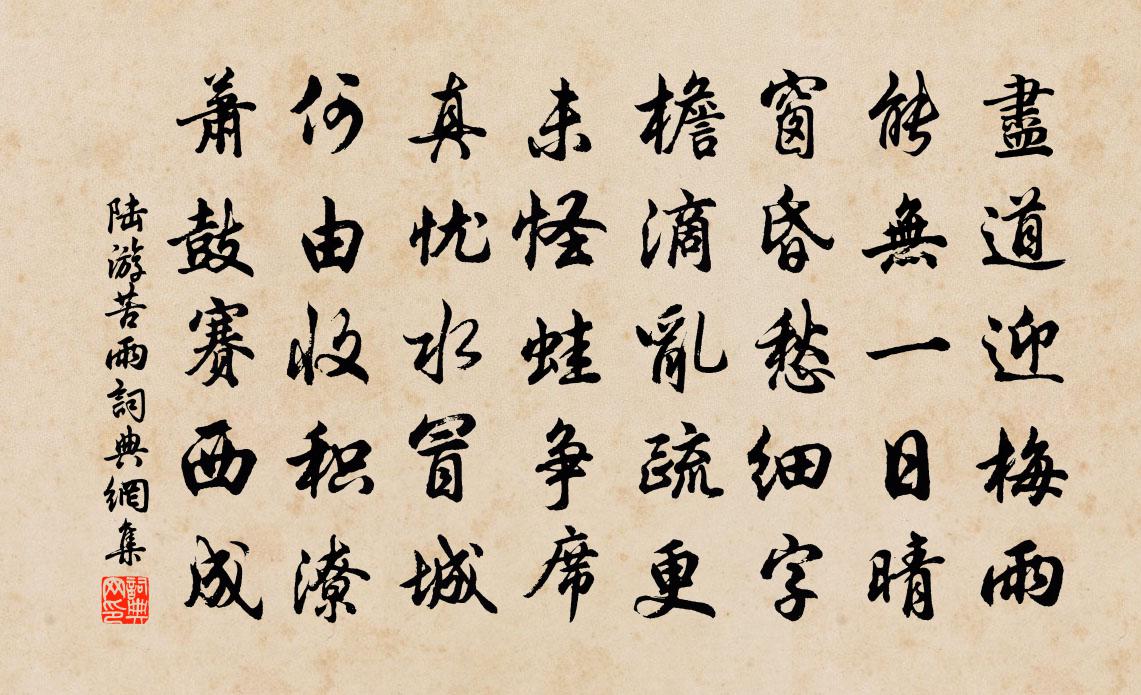 盡道迎梅雨
能無一日晴
窗昏愁細字
檐滴亂疏更
未怪蛙争席
真忧水冒城
何由收积潦
萧鼓赛西成
陆游苦雨詞典網集
詞典網印